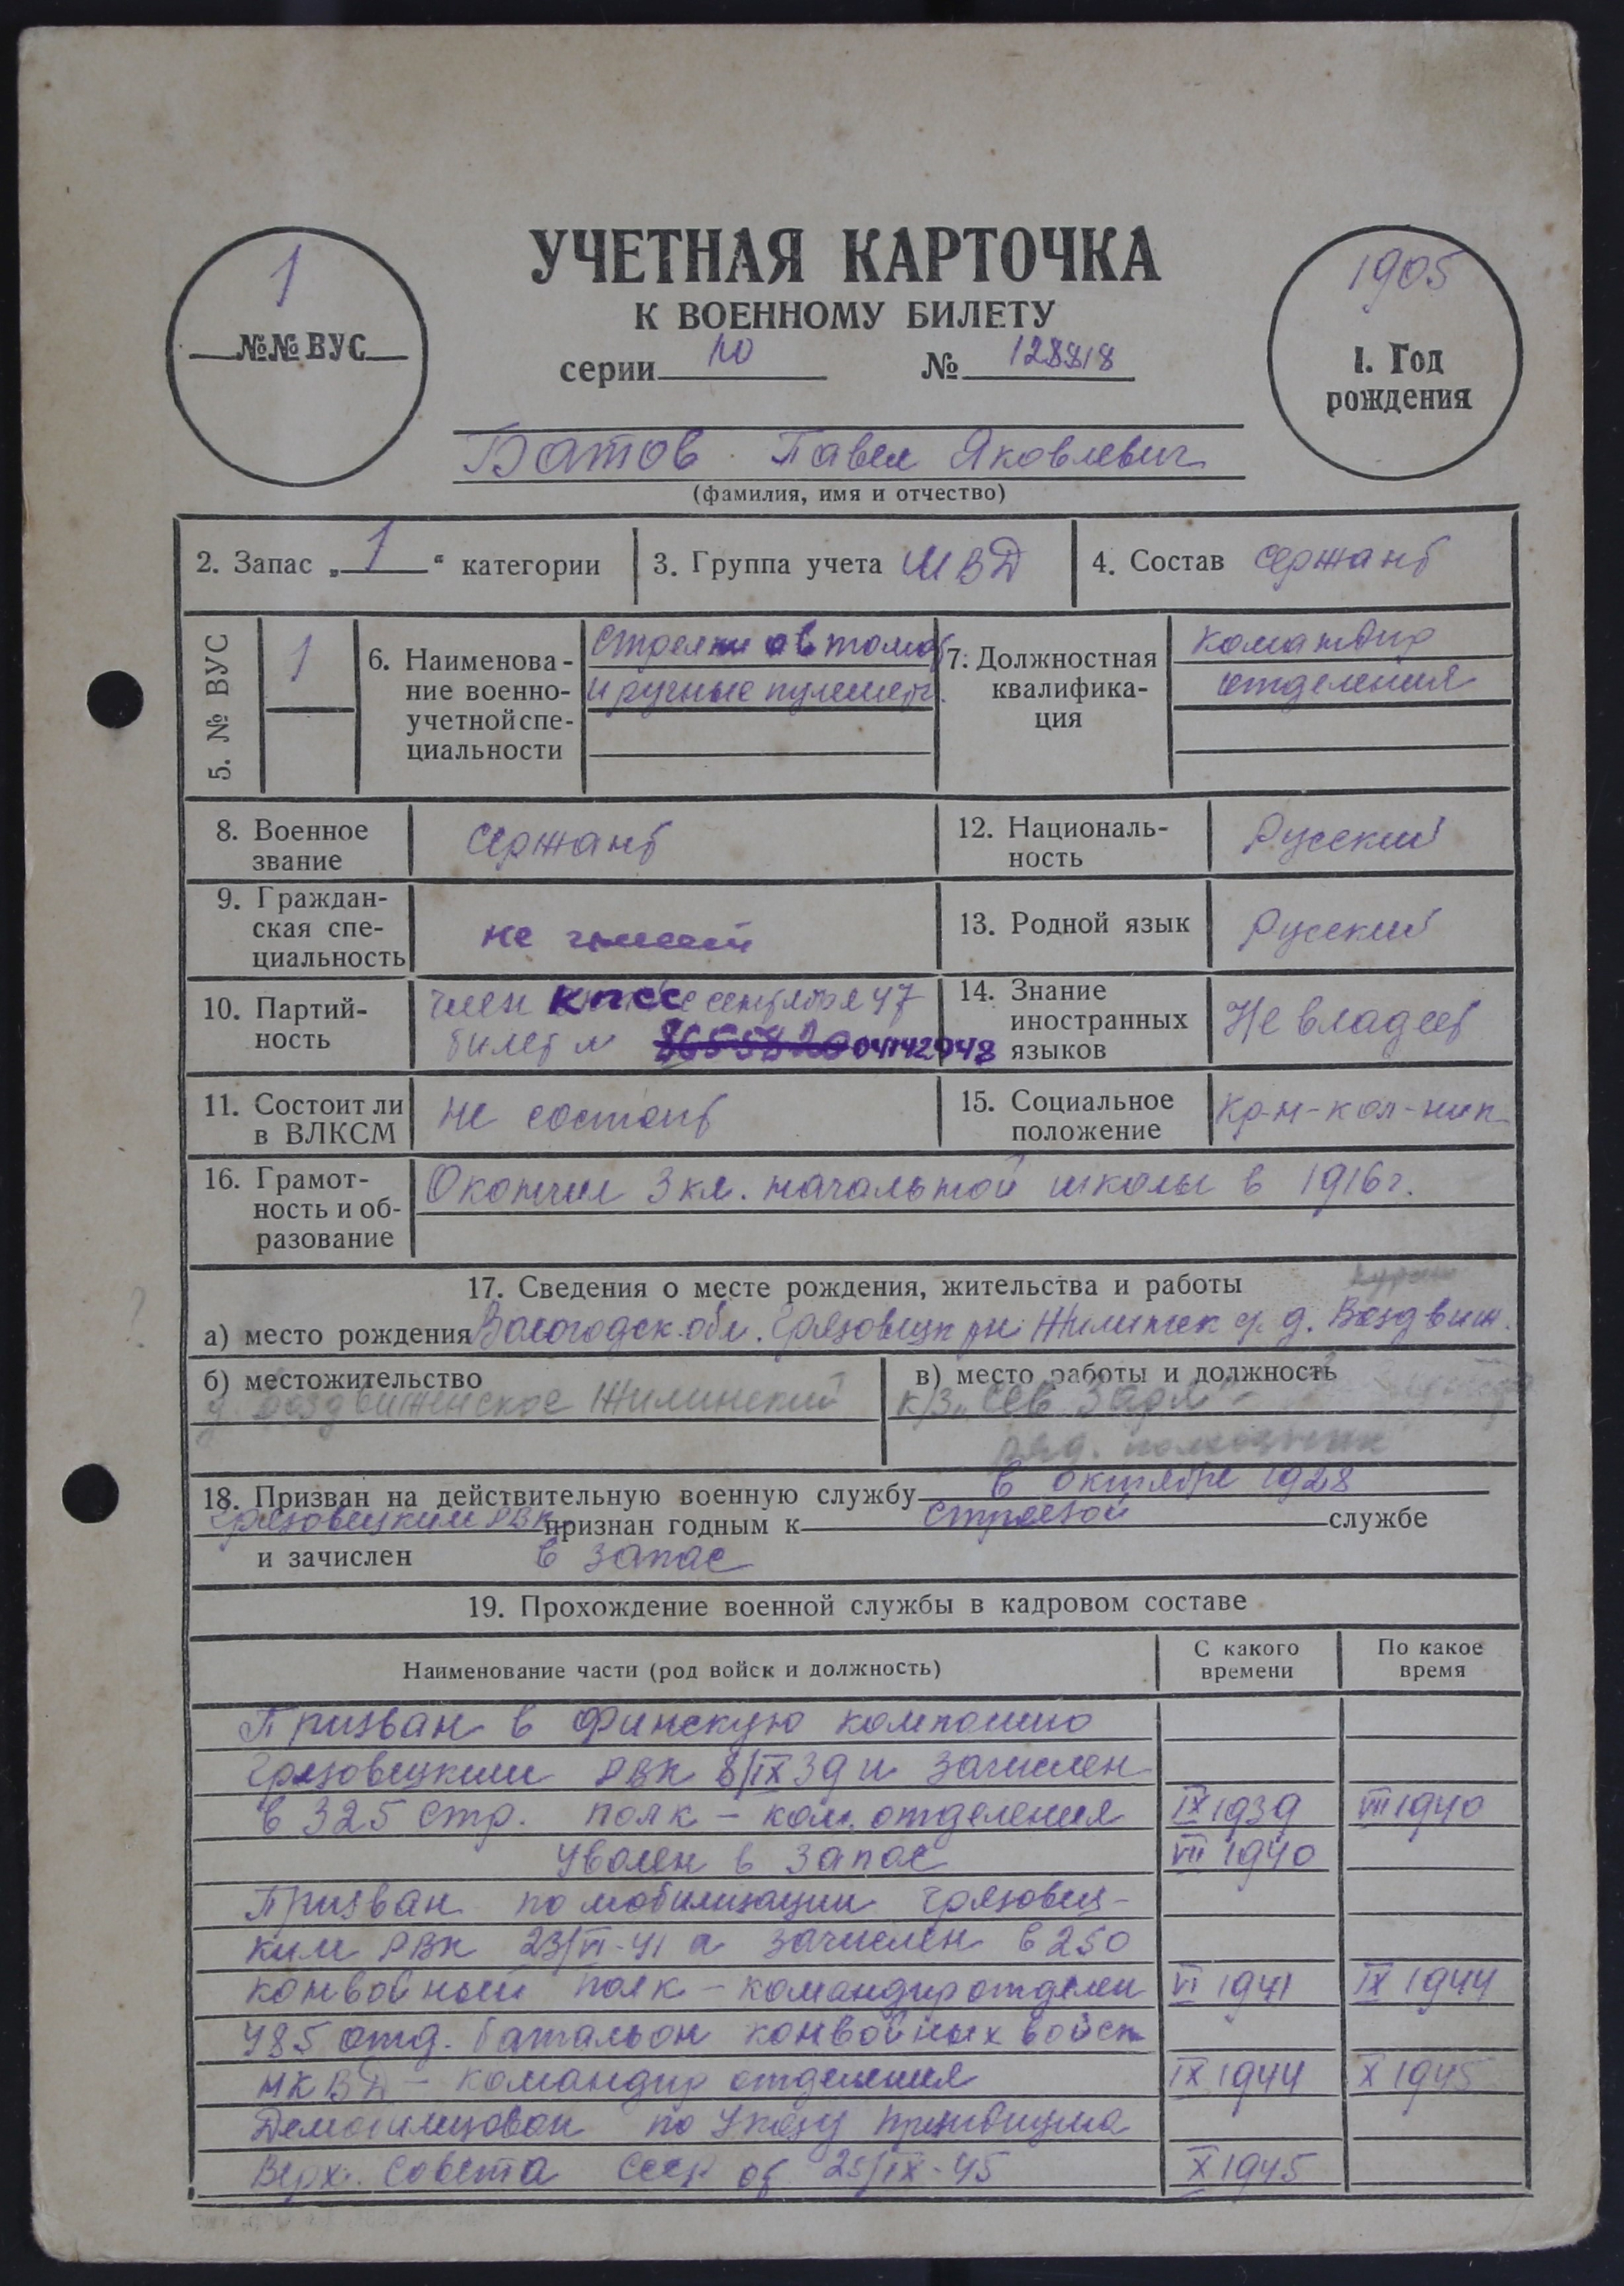 УЧЕТНАЯ КАРТОЧКА
К ВОЕННОМУ БИЛЕТУ
серии НО № 128818
1
№№ ВУС
1905
1. Год
рождения
Батов Павел Яковлевич
(фамилия, имя и отчество)
2. Запас „1“ категории
3. Группа учета МВД
4. Состав сержант
5. № ВУС
1
6. Наименова-
ние военно-
учетной спе-
циальности
Стрелки автомат
и ручные пулемет.
7. Должностная
квалифика-
ция
командир
отделения
8. Военное
звание
сержант
12. Националь-
ность
Русский
9. Граждан-
ская спе-
циальность
не имеет
13. Родной язык
Русский
10. Партий-
ность
член КПСС с сентября 47
билет № 8655820 04142948
14. Знание
иностранных
языков
Не владеет
11. Состоит ли
в ВЛКСМ
не состоит
15. Социальное
положение
кр-н-кол-ник
16. Грамот-
ность и об-
разование
Окончил 3 кл. начальной школы в 1916 г.
17. Сведения о месте рождения, жительства и работы
а) место рождения Вологодск обл. Грязовецк рн Жилинск с/с д. Воздвиж.
б) местожительство
д. Воздвиженское Жилинский
в) место работы и должность
к/з „Сев. Заря“
ряд. колхозник
18. Призван на действительную военную службу в октябре 1928
Грязовецким РВК признан годным к строевой службе
и зачислен в запас
19. Прохождение военной службы в кадровом составе
Наименование части (род войск и должность)
С какого
времени
По какое
время
Призван в Финскую компанию
Грязовецким РВК 8/IX 39 и зачислен
в 325 стр. полк – ком. отделения IX 1939 VII 1940
Уволен в запас VII 1940
Призван по мобилизации Грязовец-
ким РВК 23/VI-41 и зачислен в 250
конвойный полк – командир отделен VI 1941 IX 1944
485 отд. батальон конвойных войск
НКВД – командир отделения IX 1944 X 1945
Демобилизован по Указу Президиума
Верх. Совета СССР от 25/IX-45 X 1945